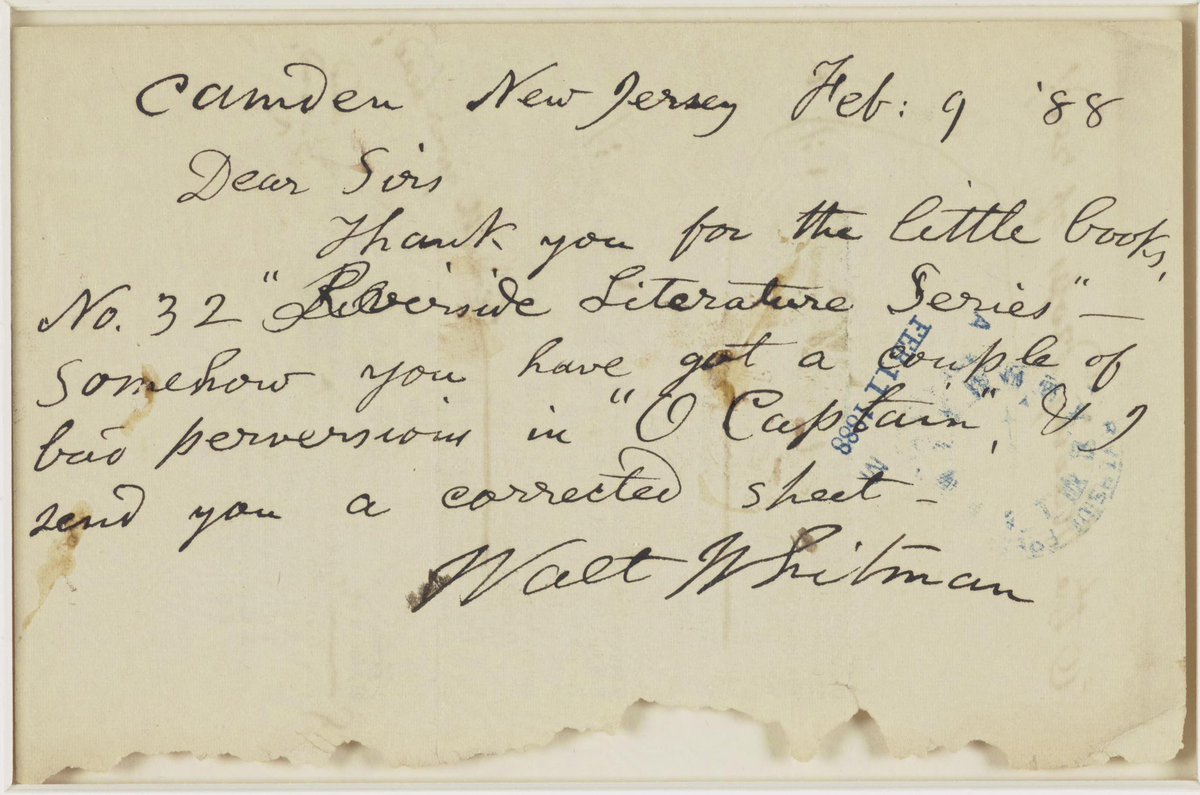 Camden New Jersey Feb: 9 '88
Dear Sirs
Thank you for the little books,
No. 32 "Riverside Literature Series" —
Somehow you have got a couple of
bad perversions in "O Captain," & I
send you a corrected sheet —
Walt Whitman
FEB 11 1888